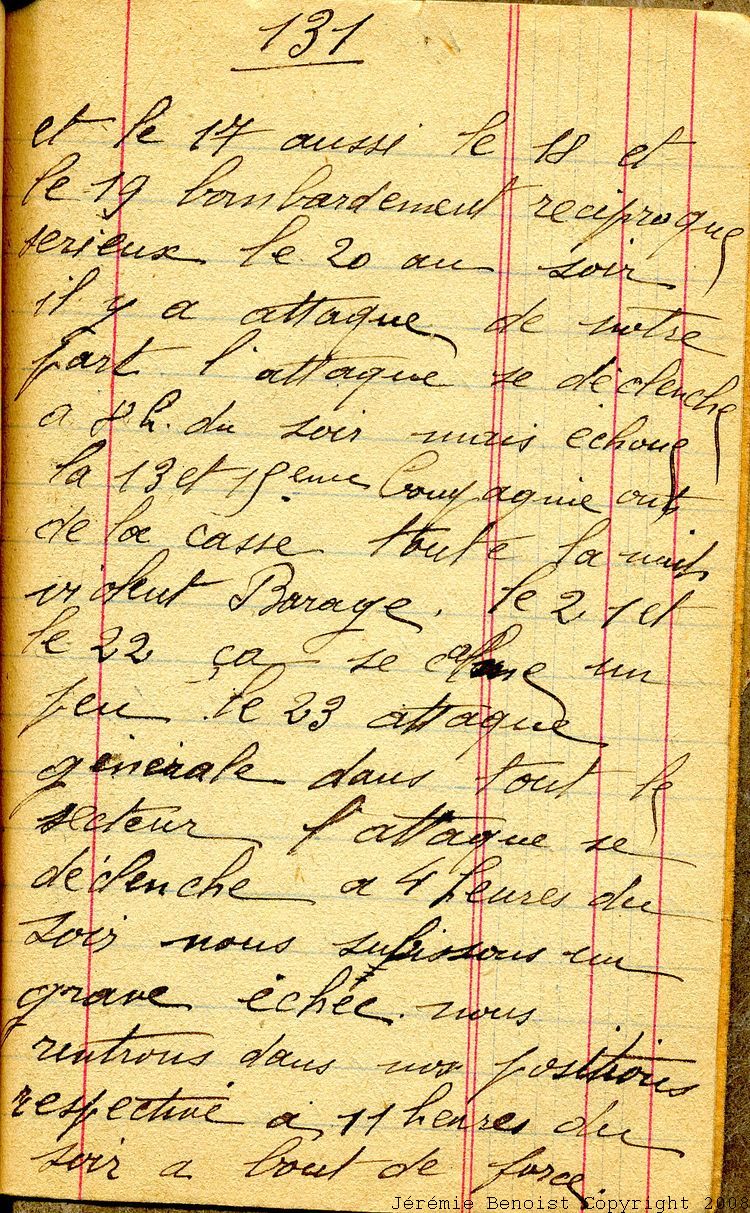 131
et le 17 aussi le 18 et
le 19 bombardement reciproque
serieux le 20 au soir
il y a attaque de notre
part l'attaque se déclenche
a 8h. du soir mais échoue
la 13 et 15eme Compagnie ont
de la casse toute la nuit
violent Barage. le 21 et
le 22 ça se calme un
peu. le 23 attaque
générale dans tout le
secteur l'attaque se
déclenche a 4 heures du
soir nous subissons un
grave échée. nous
rentrons dans nos positions
respective a 11 heures du
soir a bout de force.
Jérémie Benoist Copyright